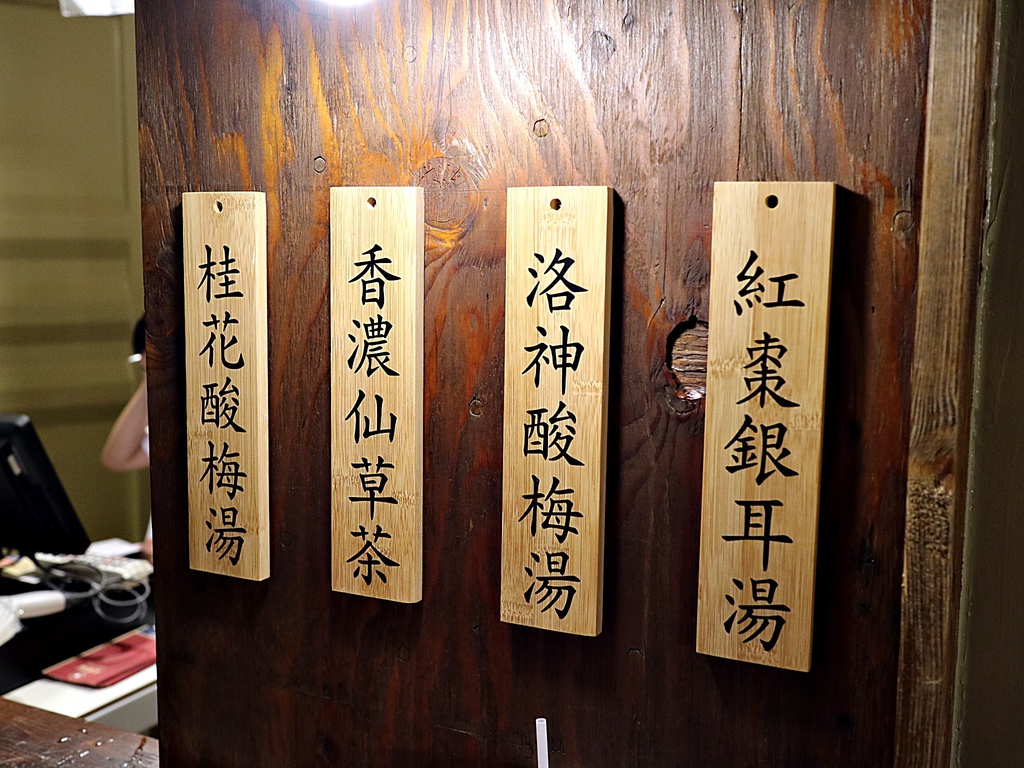 桂花酸梅湯
香濃仙草茶
洛神酸梅湯
紅棗銀耳湯